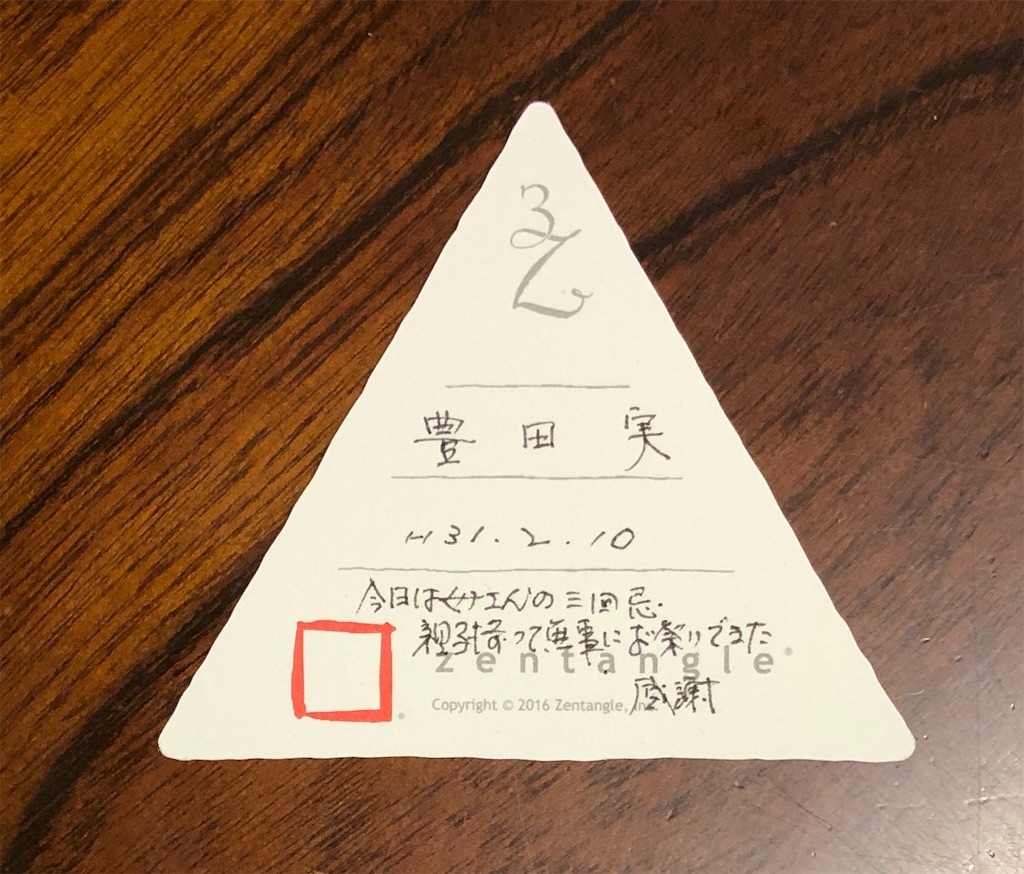 豊田 実
H31.2.10
今日は の三回忌.
親子揃って無事にお祭りできた
zentangle®
感謝
Copyright © 2016 Zentangle, Inc